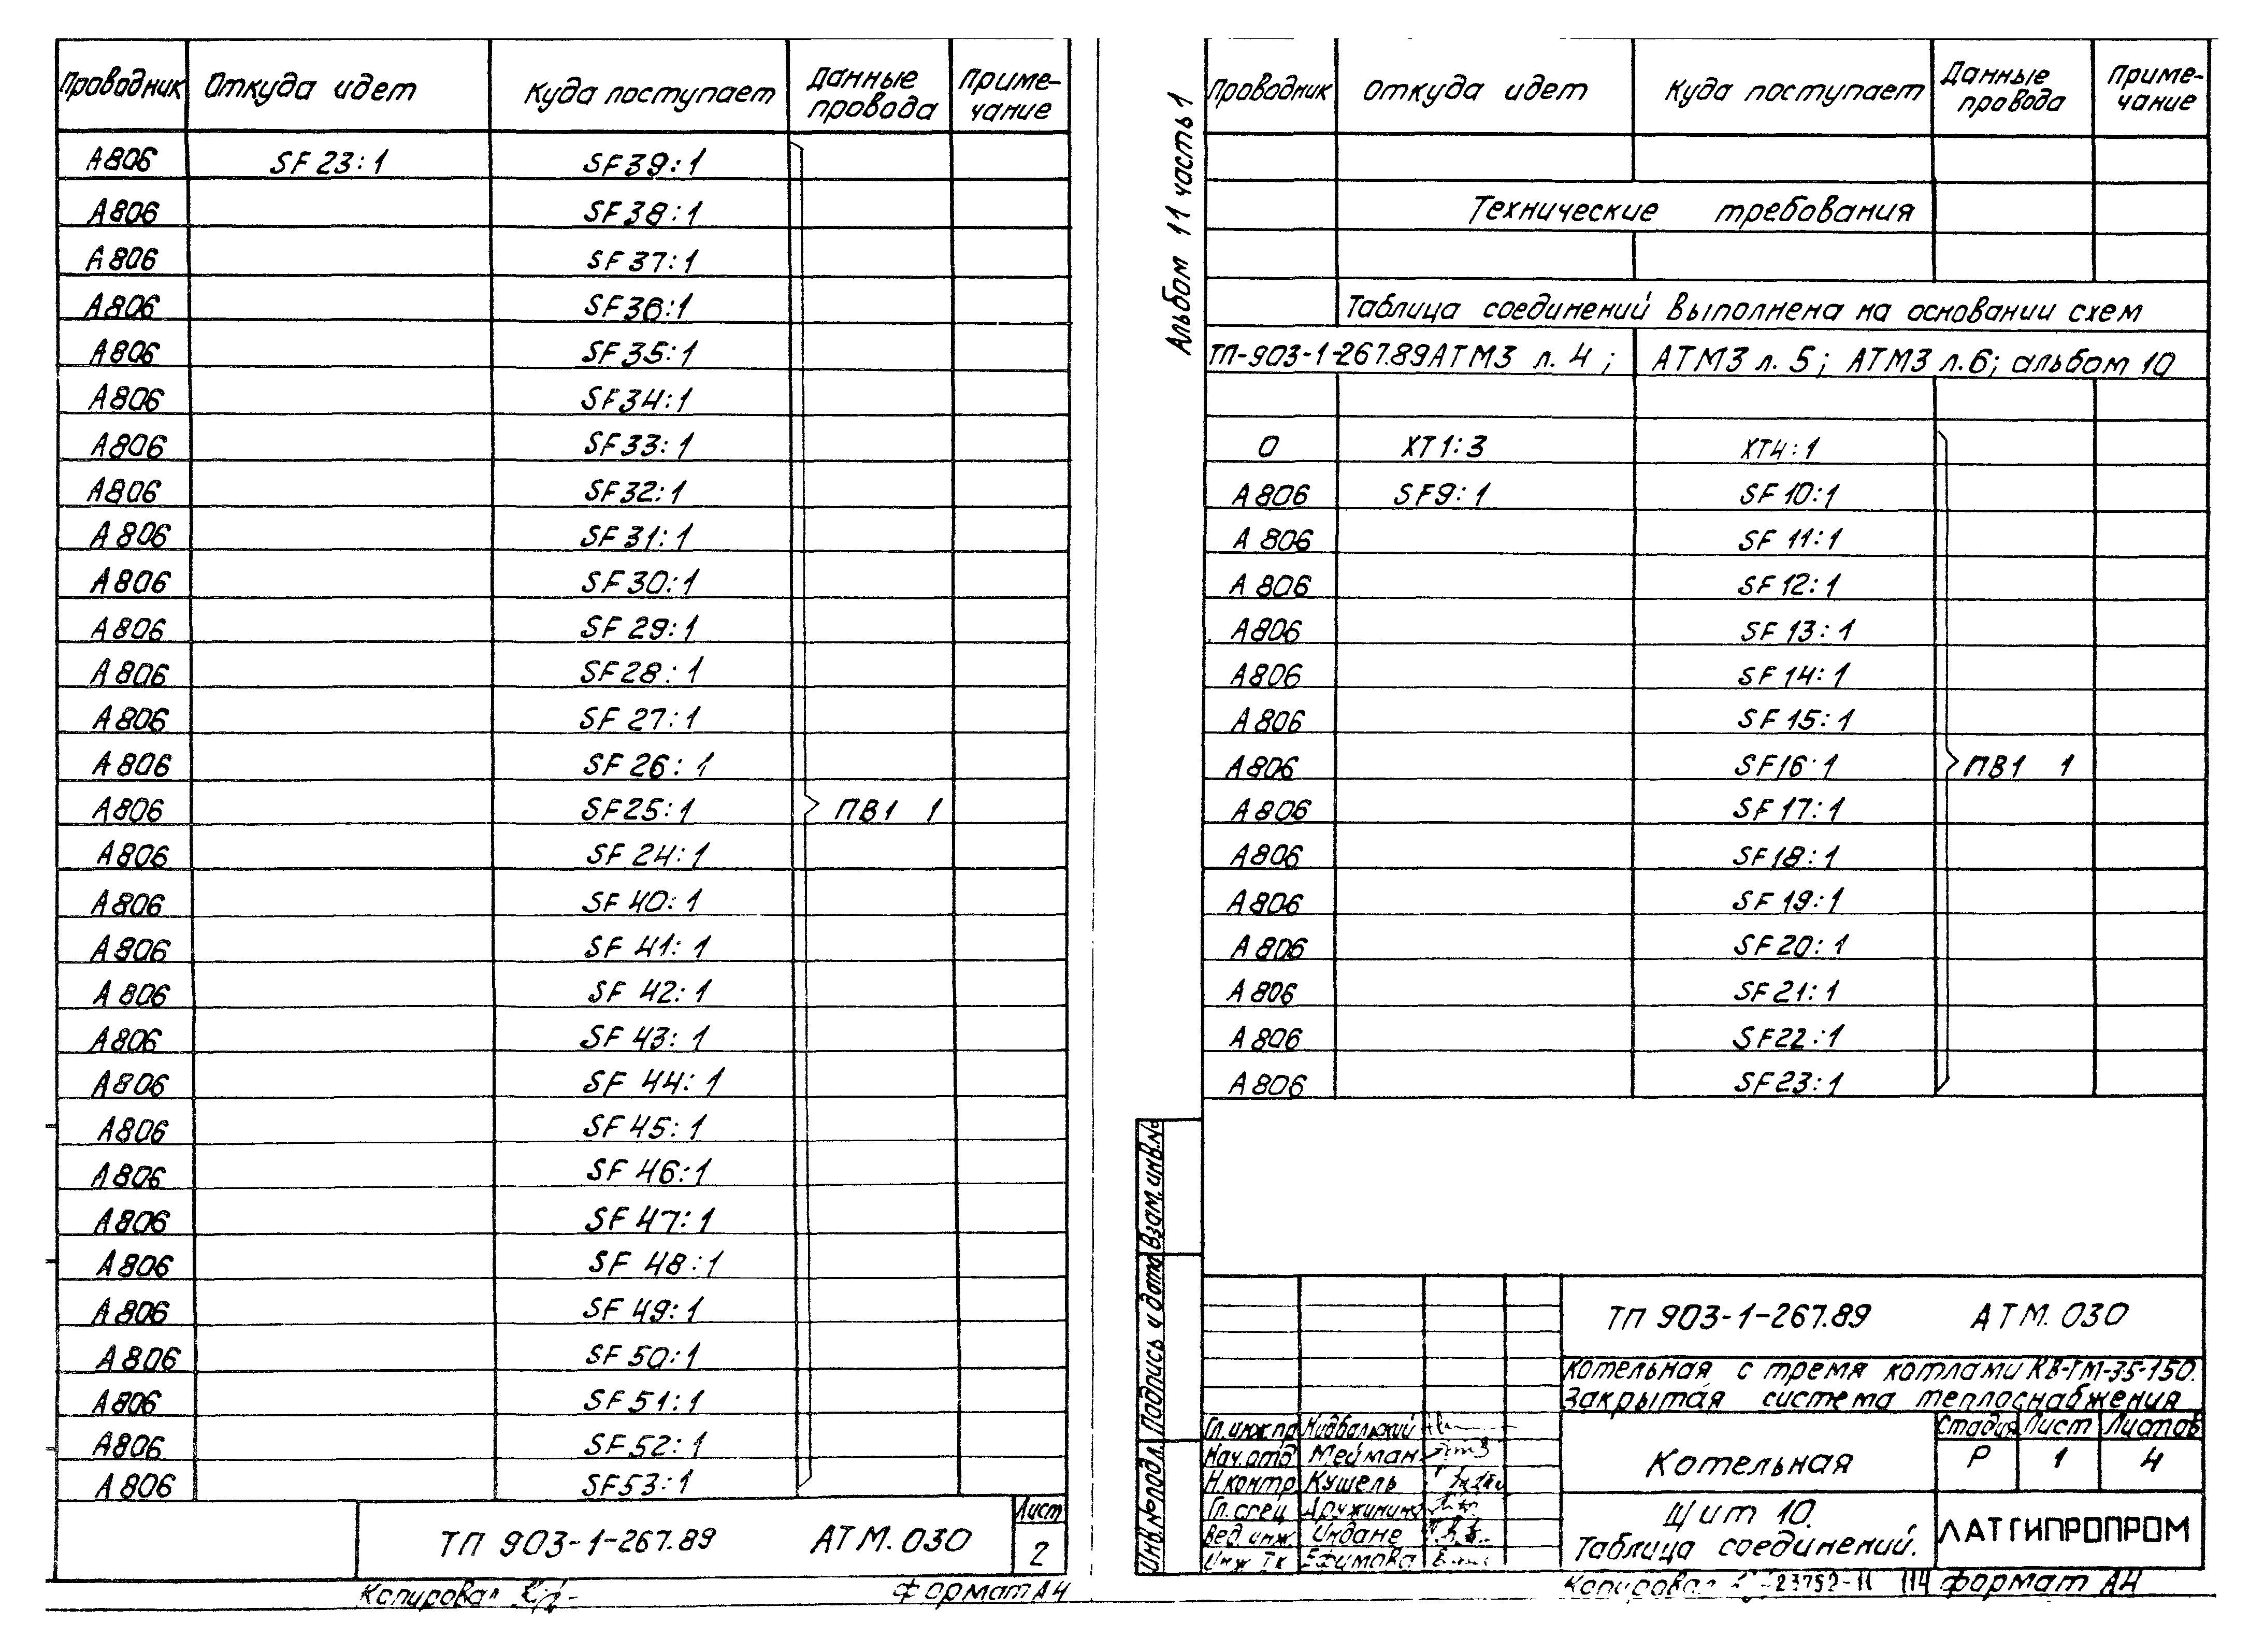 Проводник Откуда идет Куда поступает Данные провода Приме-чание
А806 SF23:1 SF39:1
А806 SF38:1
А806 SF37:1
А806 SF36:1
А806 SF35:1
А806 SF34:1
А806 SF33:1
А806 SF32:1
А806 SF31:1
А806 SF30:1
А806 SF29:1
А806 SF28:1
А806 SF27:1
А806 SF26:1
А806 SF25:1 ПВ1 1
А806 SF24:1
А806 SF40:1
А806 SF41:1
А806 SF42:1
А806 SF43:1
А806 SF44:1
А806 SF45:1
А806 SF46:1
А806 SF47:1
А806 SF48:1
А806 SF49:1
А806 SF50:1
А806 SF51:1
А806 SF52:1
А806 SF53:1
ТП 903-1-267.89 АТМ.030
Лист
2
Копировал
формат А4
Альбом 11 часть 1
Проводник Откуда идет Куда поступает Данные провода Приме-чание
Технические требования
Таблица соединений выполнена на основании схем
ТП-903-1-267.89АТМ3 л. 4; АТМ3 л. 5; АТМ3 л.6; альбом 10
0 XT1:3 XT4:1
А806 SF9:1 SF10:1
А806 SF11:1
А806 SF12:1
А806 SF13:1
А806 SF14:1
А806 SF15:1
А806 SF16:1 ПВ1 1
А806 SF17:1
А806 SF18:1
А806 SF19:1
А806 SF20:1
А806 SF21:1
А806 SF22:1
А806 SF23:1
Взам.инв.№
Подпись и дата
Инв.№подл.
ТП 903-1-267.89 АТМ.030
Котельная с тремя котлами КВ-ГМ-35-150.
Закрытая система теплоснабжения
Гл.инж.пр Нидбальский
Нач.отд Мейман
Н.контр Кушель
Гл.спец Дружинина
Вед.инж Индане
Инж Iк Ефимова
Котельная
Стадия Лист Листов
Р 1 4
Щит 10.
Таблица соединений.
ЛАТГИПРОПРОМ
Копировал 23752-11 114 формат А4